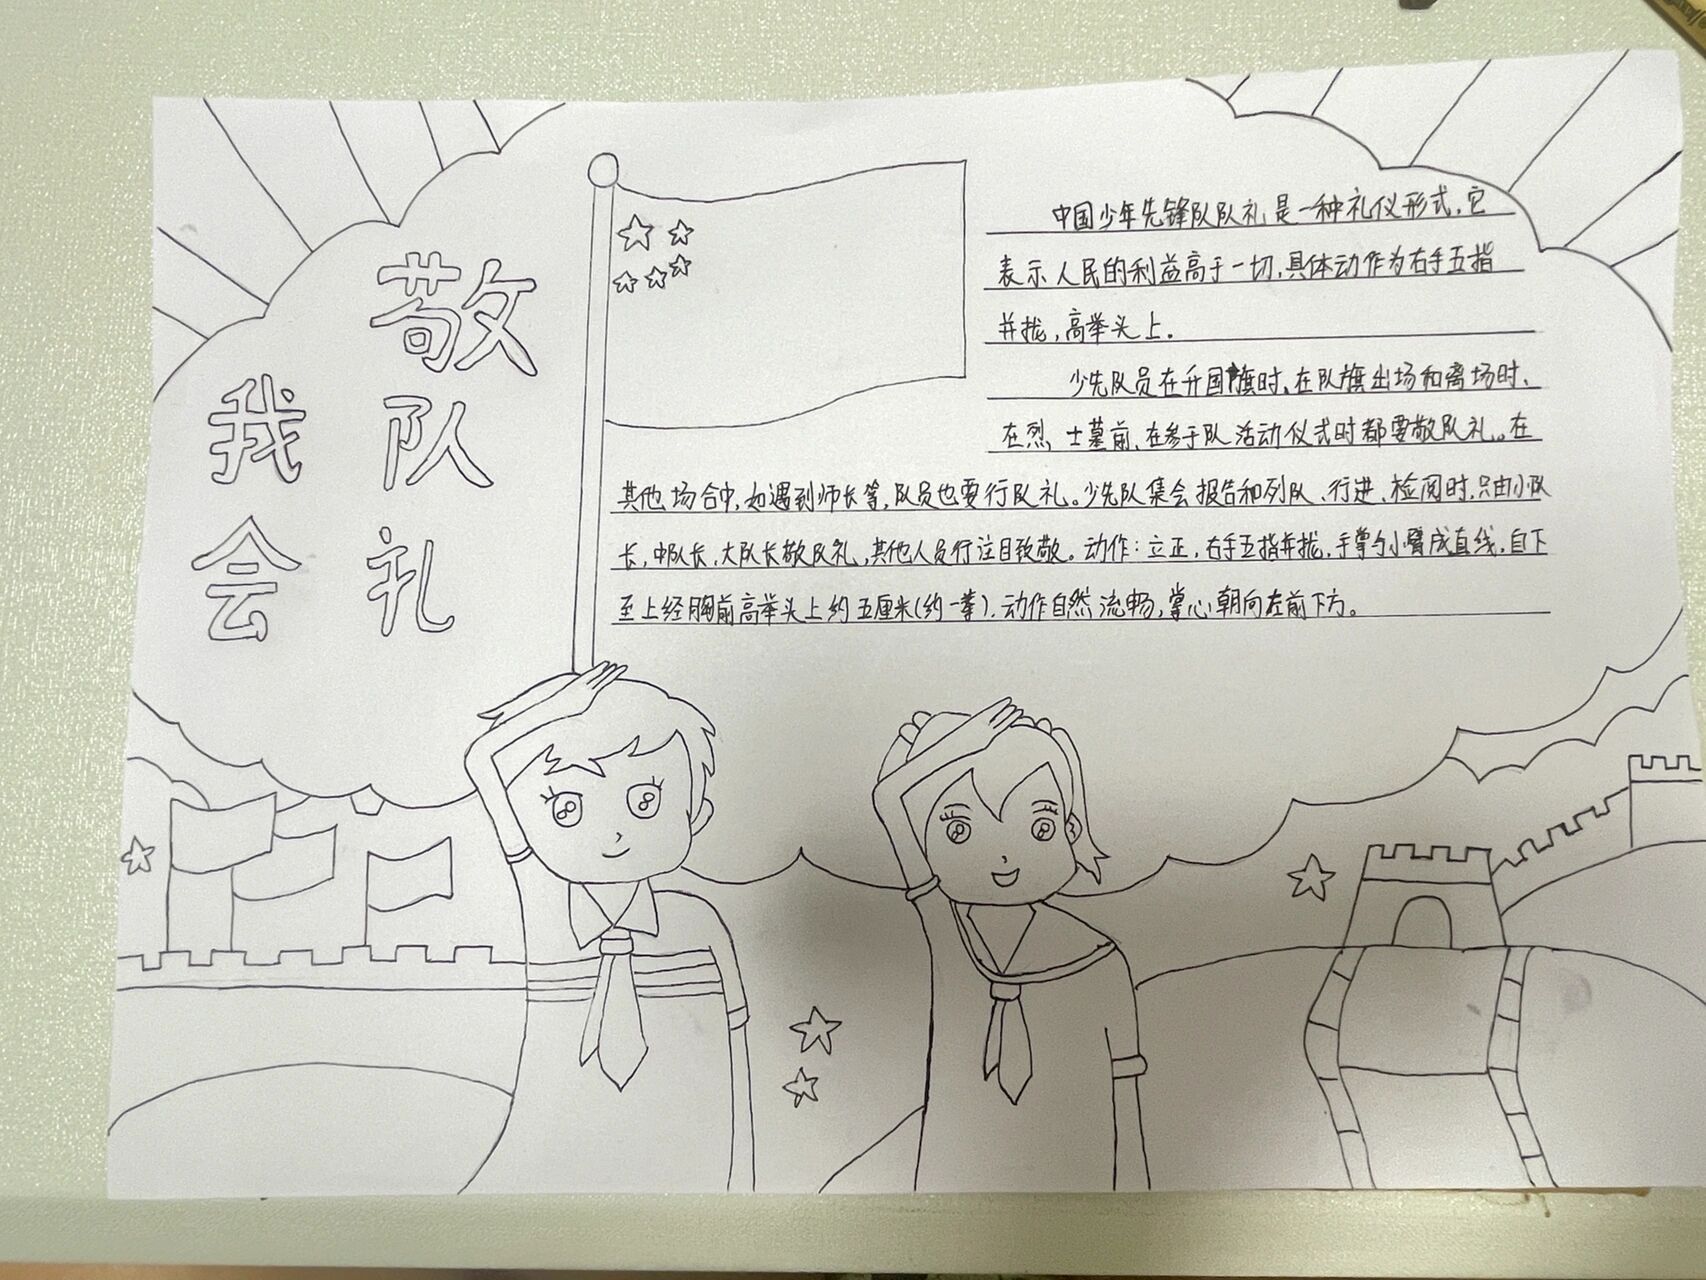 我会
敬队礼
中国少年先锋队队礼是一种礼仪形式,它
表示人民的利益高于一切,具体动作为右手五指
并拢,高举头上。
少先队员在升国旗时、在队旗出场和离场时、
在烈士墓前、在参于队活动仪式时都要敬队礼。在
其他场合中,如遇到师长等,队员也要行队礼。少先队集会报告和列队、行进、检阅时,只由小队
长,中队长,大队长敬队礼,其他人员行注目致敬。动作:立正,右手五指并拢,手掌与小臂成直线,自下
至上经胸前高举头上约五厘米(约一拳),动作自然流畅,掌心朝向左前下方。